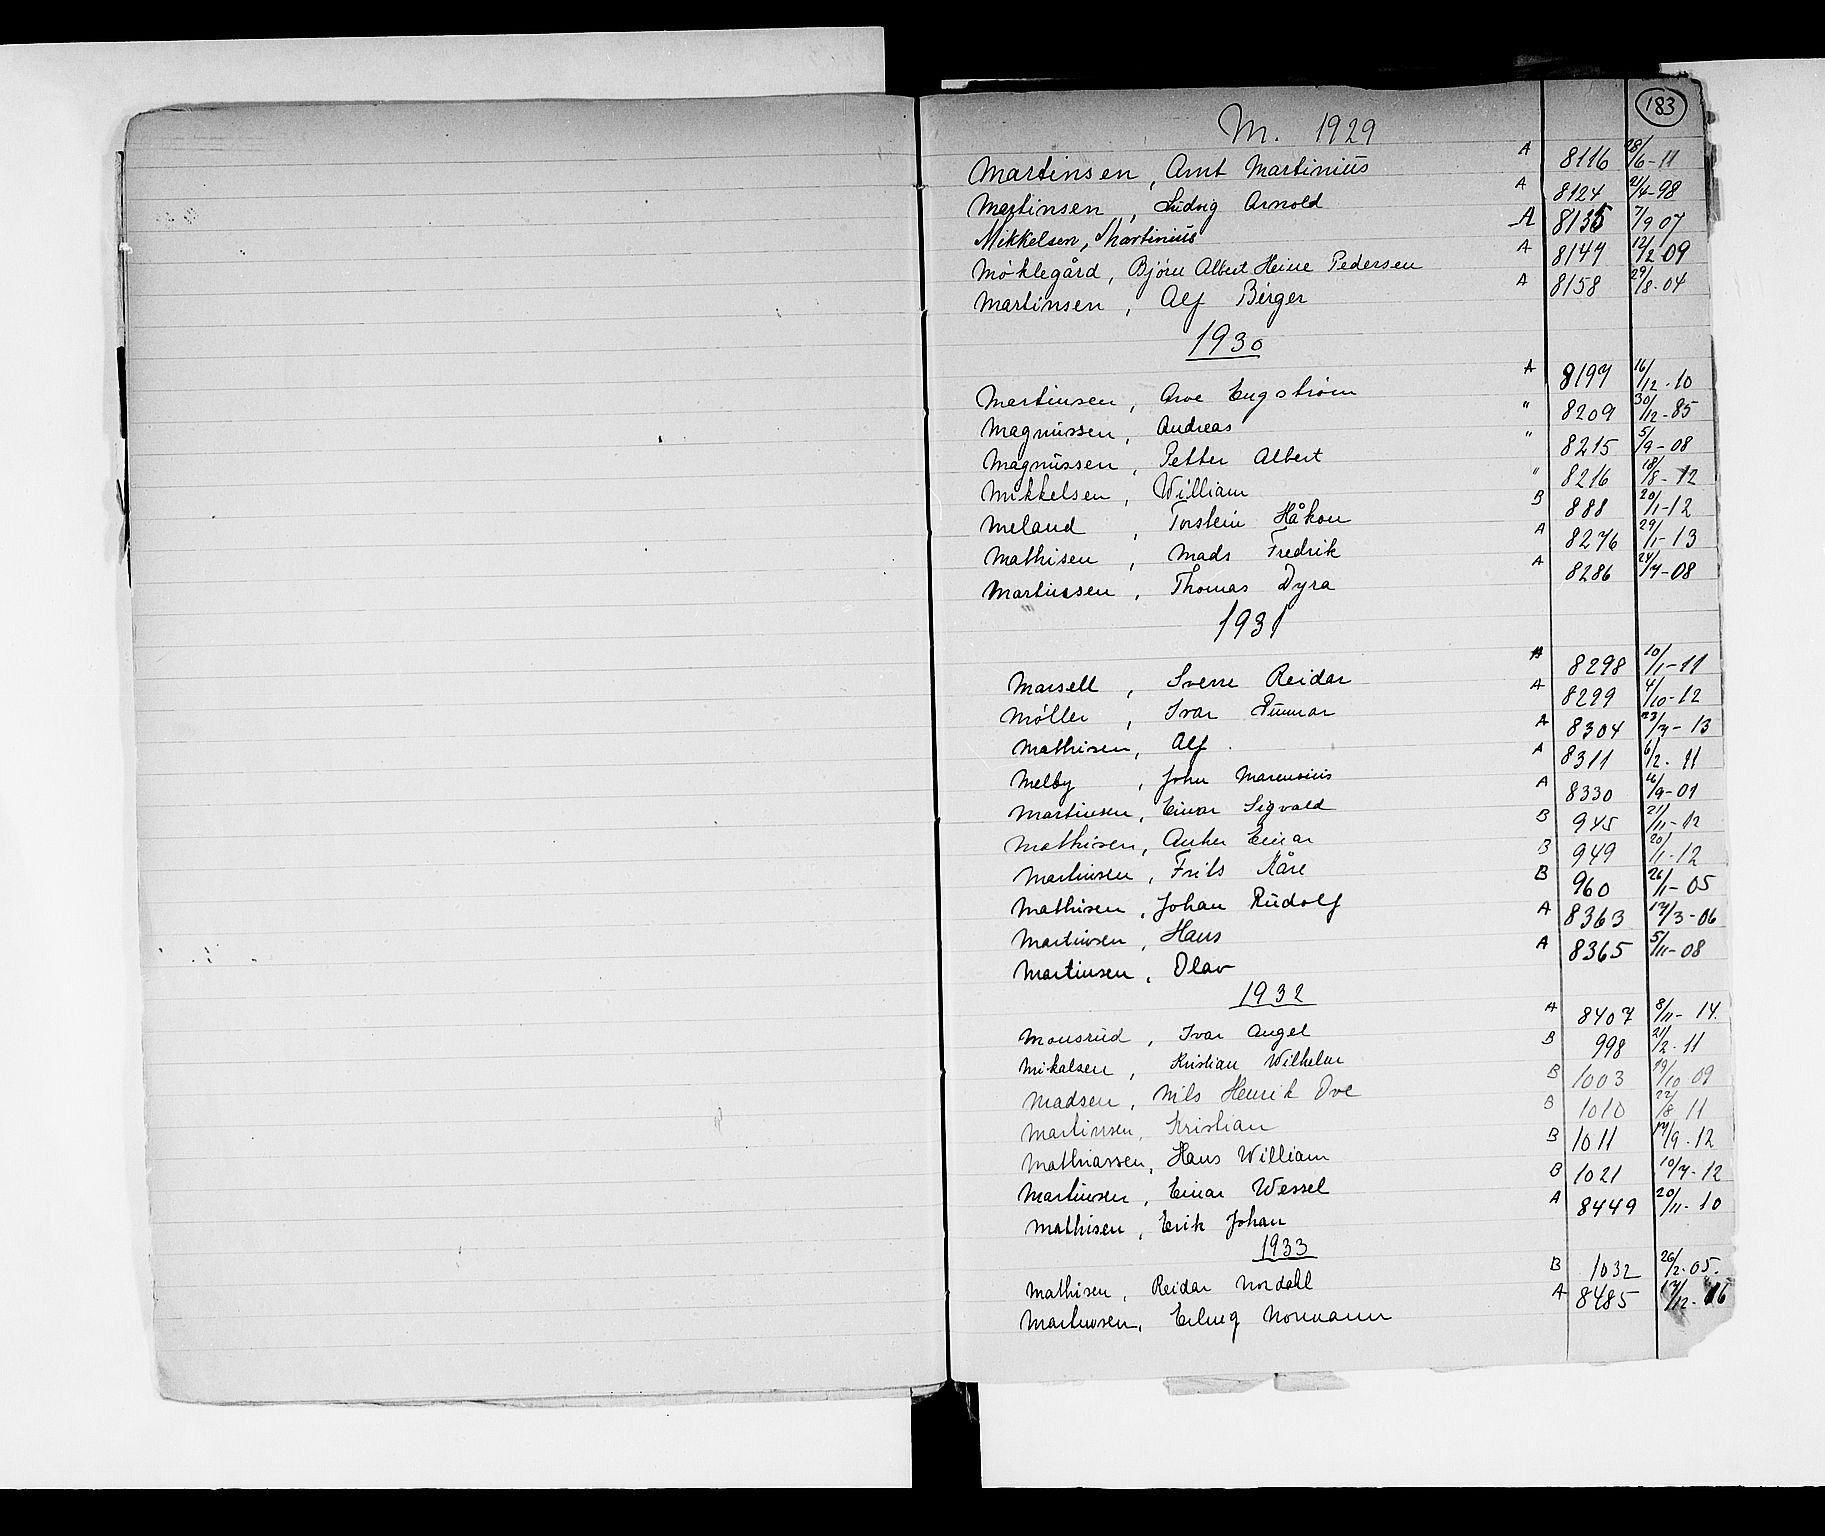 183
M. 1929
Martinsen, Arnt Martinius A 8116 28/6-11
Martinsen, Ludvig Arnold A 8124 21/4-98
Mikkelsen, Martinius A 8135 7/9 07
Møklegård, Bjørn Albert Heine Pedersen A 8147 12/2 09
Martinsen, Alf Birger A 8158 29/8-04
1930
Martinsen, Arve Engstrøm A 8197 16/12-10
Magnussen, Andreas " 8209 30/12-85
Magnussen, Petter Albert " 8215 5/9-08
Mikkelsen, William " 8216 18/8-12
Meland, Torstein Håkon B 888 20/1-12
Mathisen, Mads Fredrik A 8276 29/1-13
Martinsen, Thomas Dyra A 8286 24/7-08
1931
Marsell, Sverre Reidar A 8298 10/1-11
Møller, Ivar Gunnar A 8299 4/10-12
Mathisen, Alf A 8304 23/7-13
Melby, John Marensius A 8311 6/2-11
Martinsen, Einar Sigvald A 8330 /9-01
Mathisen, Anker Einar B 945 21/11-12
Martinsen, Frits Kåre B 949 20/1-12
Mathisen, Johan Rudolf B 960 26/11-05
Martinsen, Hans A 8363 17/3-06
Martinsen, Olav A 8365 5/11-08
1932
Monsrud, Ivar Angel A 8407 8/11-14
Mikalsen, Kristian Wilhelm B 998 21/2-11
Madsen, Nils Henrik Ove B 1003 19/10 09
Martinsen, Kristian B 1010 22/8 11
Mathiassen, Hans William B 1011 17/9-12
Martinsen, Einar Wessel B 1021 10/7-12
Mathisen, Erik Johan A 8449 20/11-10
1933
Mathisen, Reidar Nordahl B 1032 26/2-05.
Martinsen, Erling Normann A 8485 17/12-16